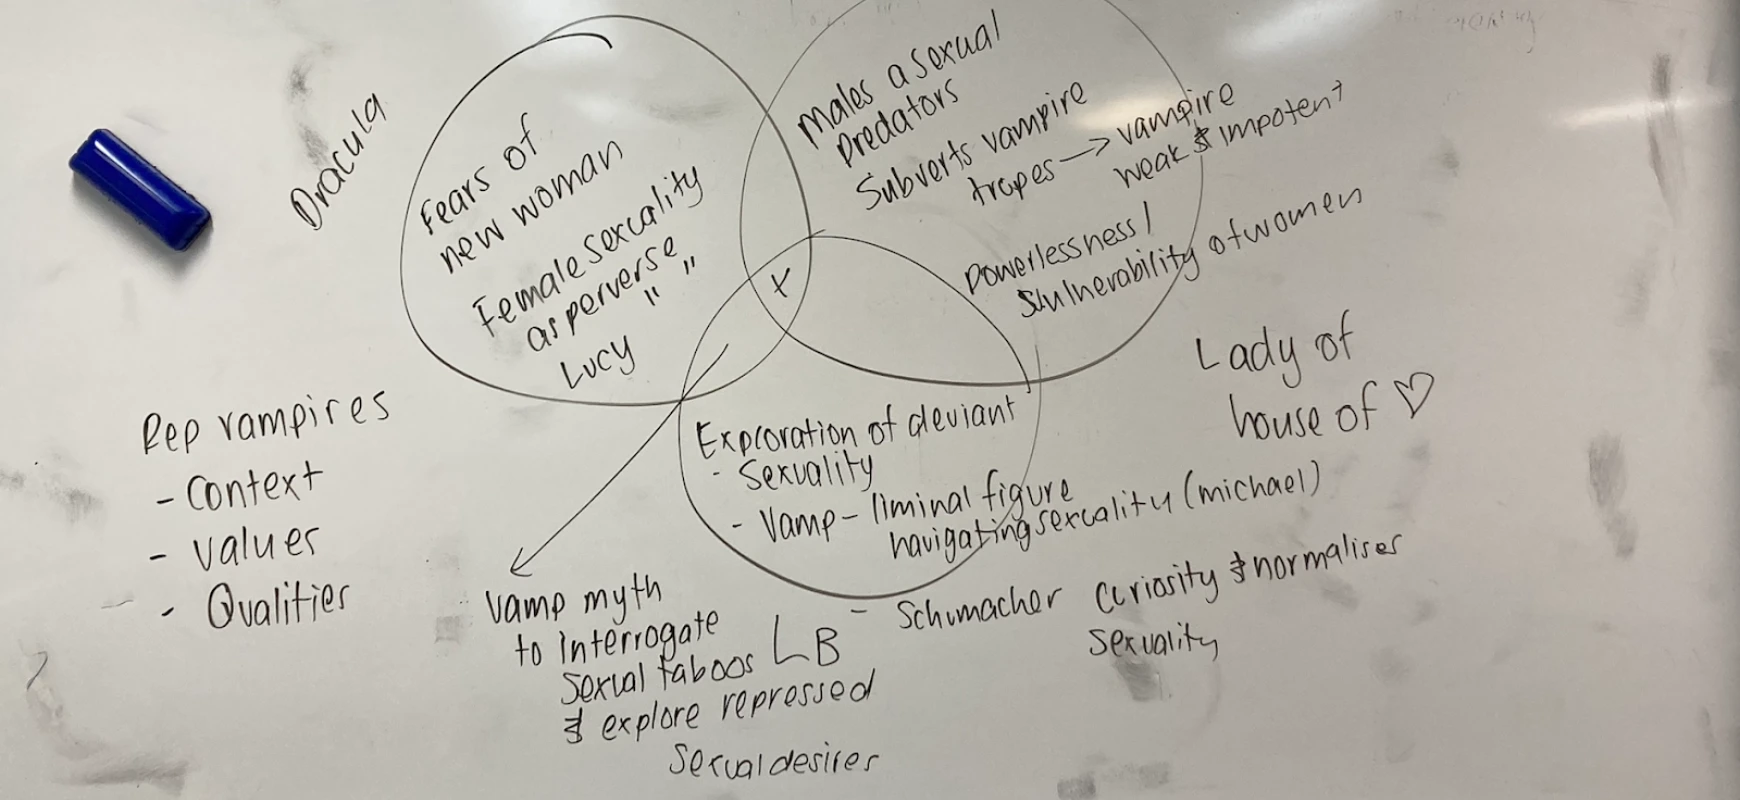 Dracula
Fears of
new woman
Female sexcality
as perverse
" "
Lucy
Males a sexual
predators
Subverts vampire
tropes → vampire
weak & impotent
powerlessness /
vulnerability of women
Lady of
house of ♡
+
Exploration of deviant
- Sexuality
- Vamp - liminal figure
navigating sexuality (michael)
- Schumacher curiosity & normalises
sexuality
LB
Rep vampires
- Context
- values
- Qualities
Vamp myth
to interrogate
sexual taboos
& explore repressed
sexual desires